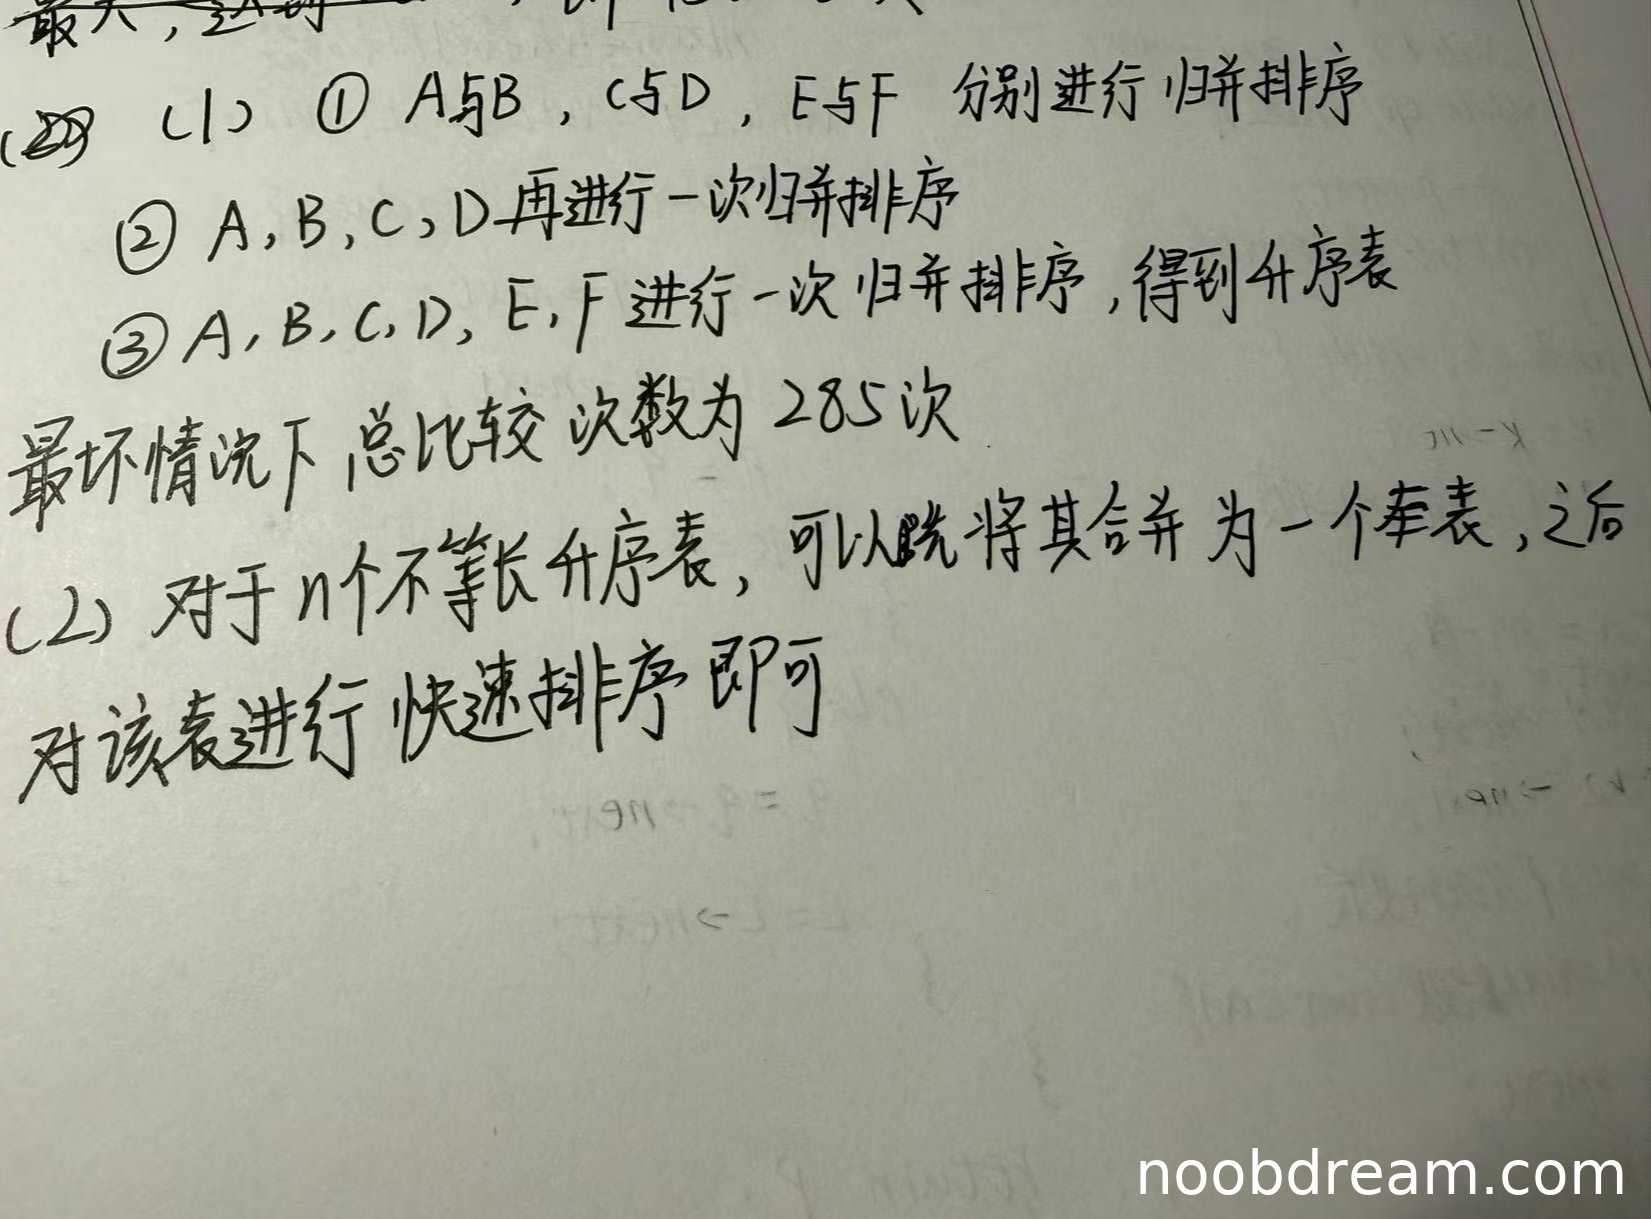 (1) ① A与B，C与D，E与F 分别进行归并排序
② A，B，C，D再进行一次归并排序
③ A，B，C，D，E，F进行一次归并排序，得到升序表
最坏情况下总比较次数为285次
(2) 对于n个不等长升序表，可以先将其合并为一个表，之后
对该表进行快速排序即可
noobdream.com